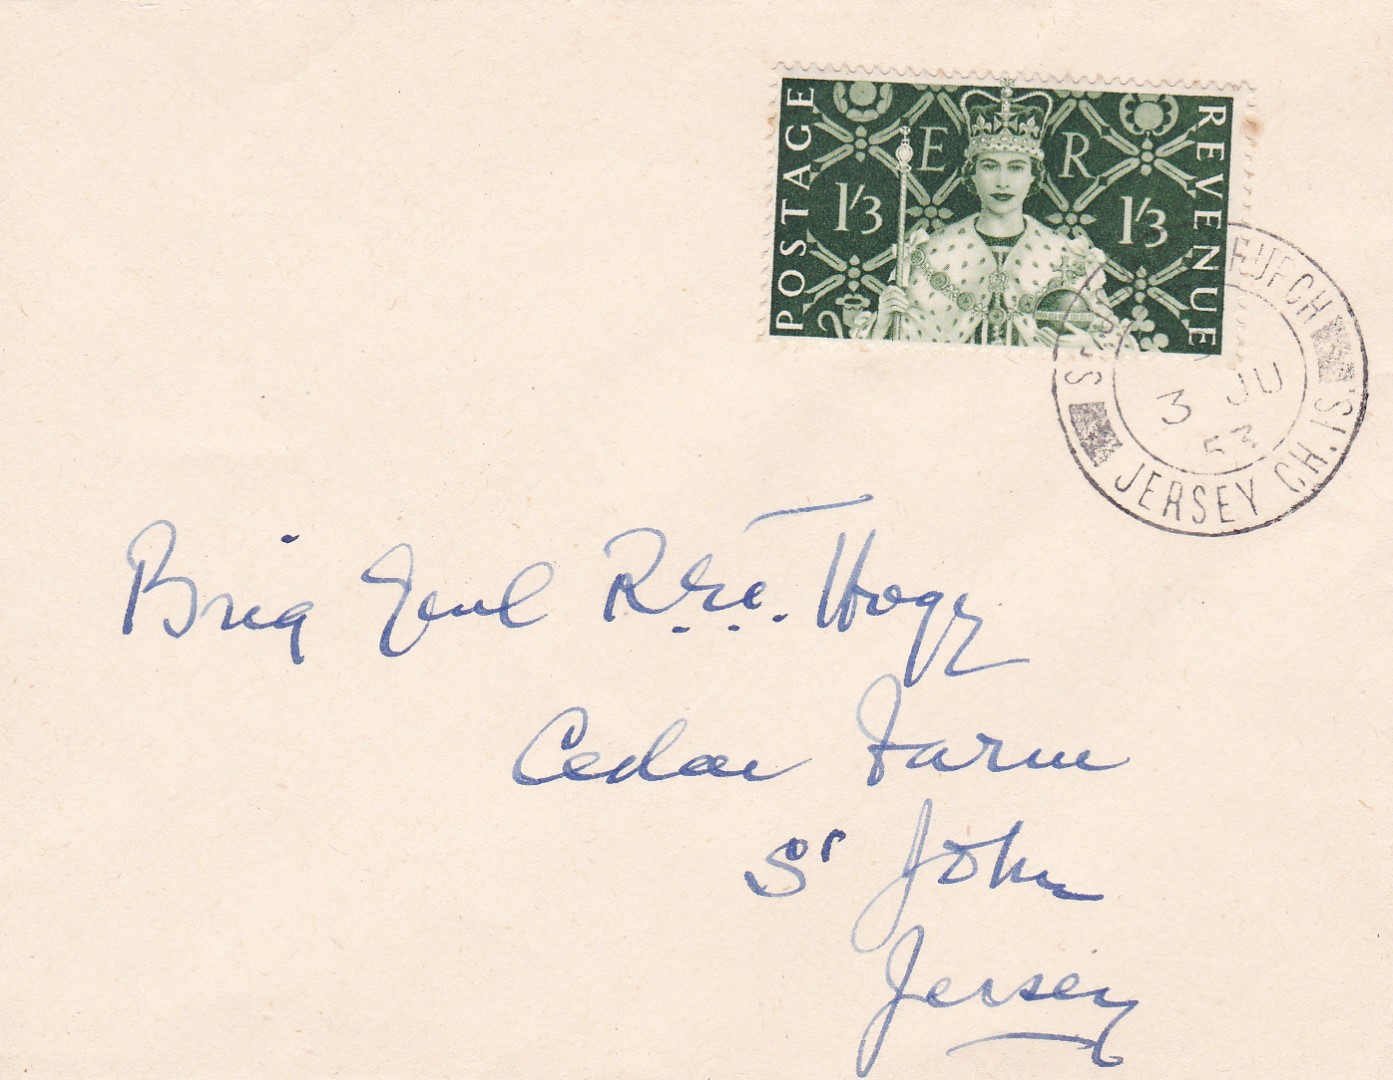 POSTAGE
E R
1/3
1/3
REVENUE
JERSEY CH. IS.
3 JU
53
Brig Genl R.E.T. Hogg
Cedar Farm
St John
Jersey